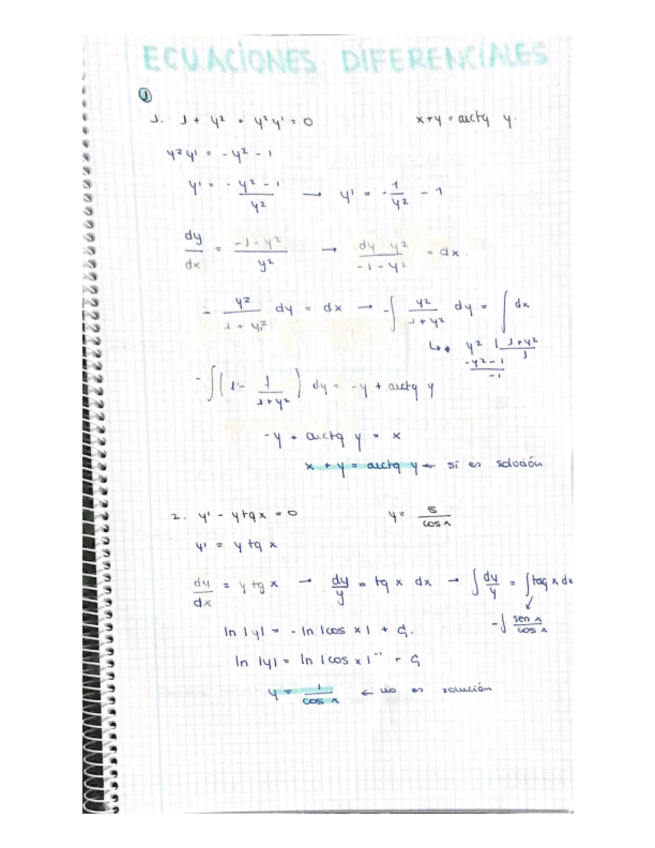 ECUACIONES DIFERENCIALES
①
1. 1 + y² + y²y' = 0 x+y = arctg y.
y²y' = - y² - 1
y' = - y² - 1 / y² → y' = - 1/y² - 1
dy/dx = -1 - y² / y² → dy y² / -1 - y² = dx.
- y² / 1 + y² dy = dx → -∫ y² / 1 + y² dy = ∫ dx
↳* y² | 1+y²
-y² - 1 1
-1
-∫(1 - 1/1+y²) dy = -y + arctg y
-y + arctg y = x
x + y = arctg y ← sí es solución
2. y' - y tg x = 0 y = 5/cos x
y' = y tg x
dy/dx = y tg x → dy/y = tg x dx → ∫ dy/y = ∫ tag x dx
-∫ sen x / cos x
ln |y| = - ln |cos x| + C.
ln |y| = ln |cos x|⁻¹ + C
y = 1/cos x ← no es solución